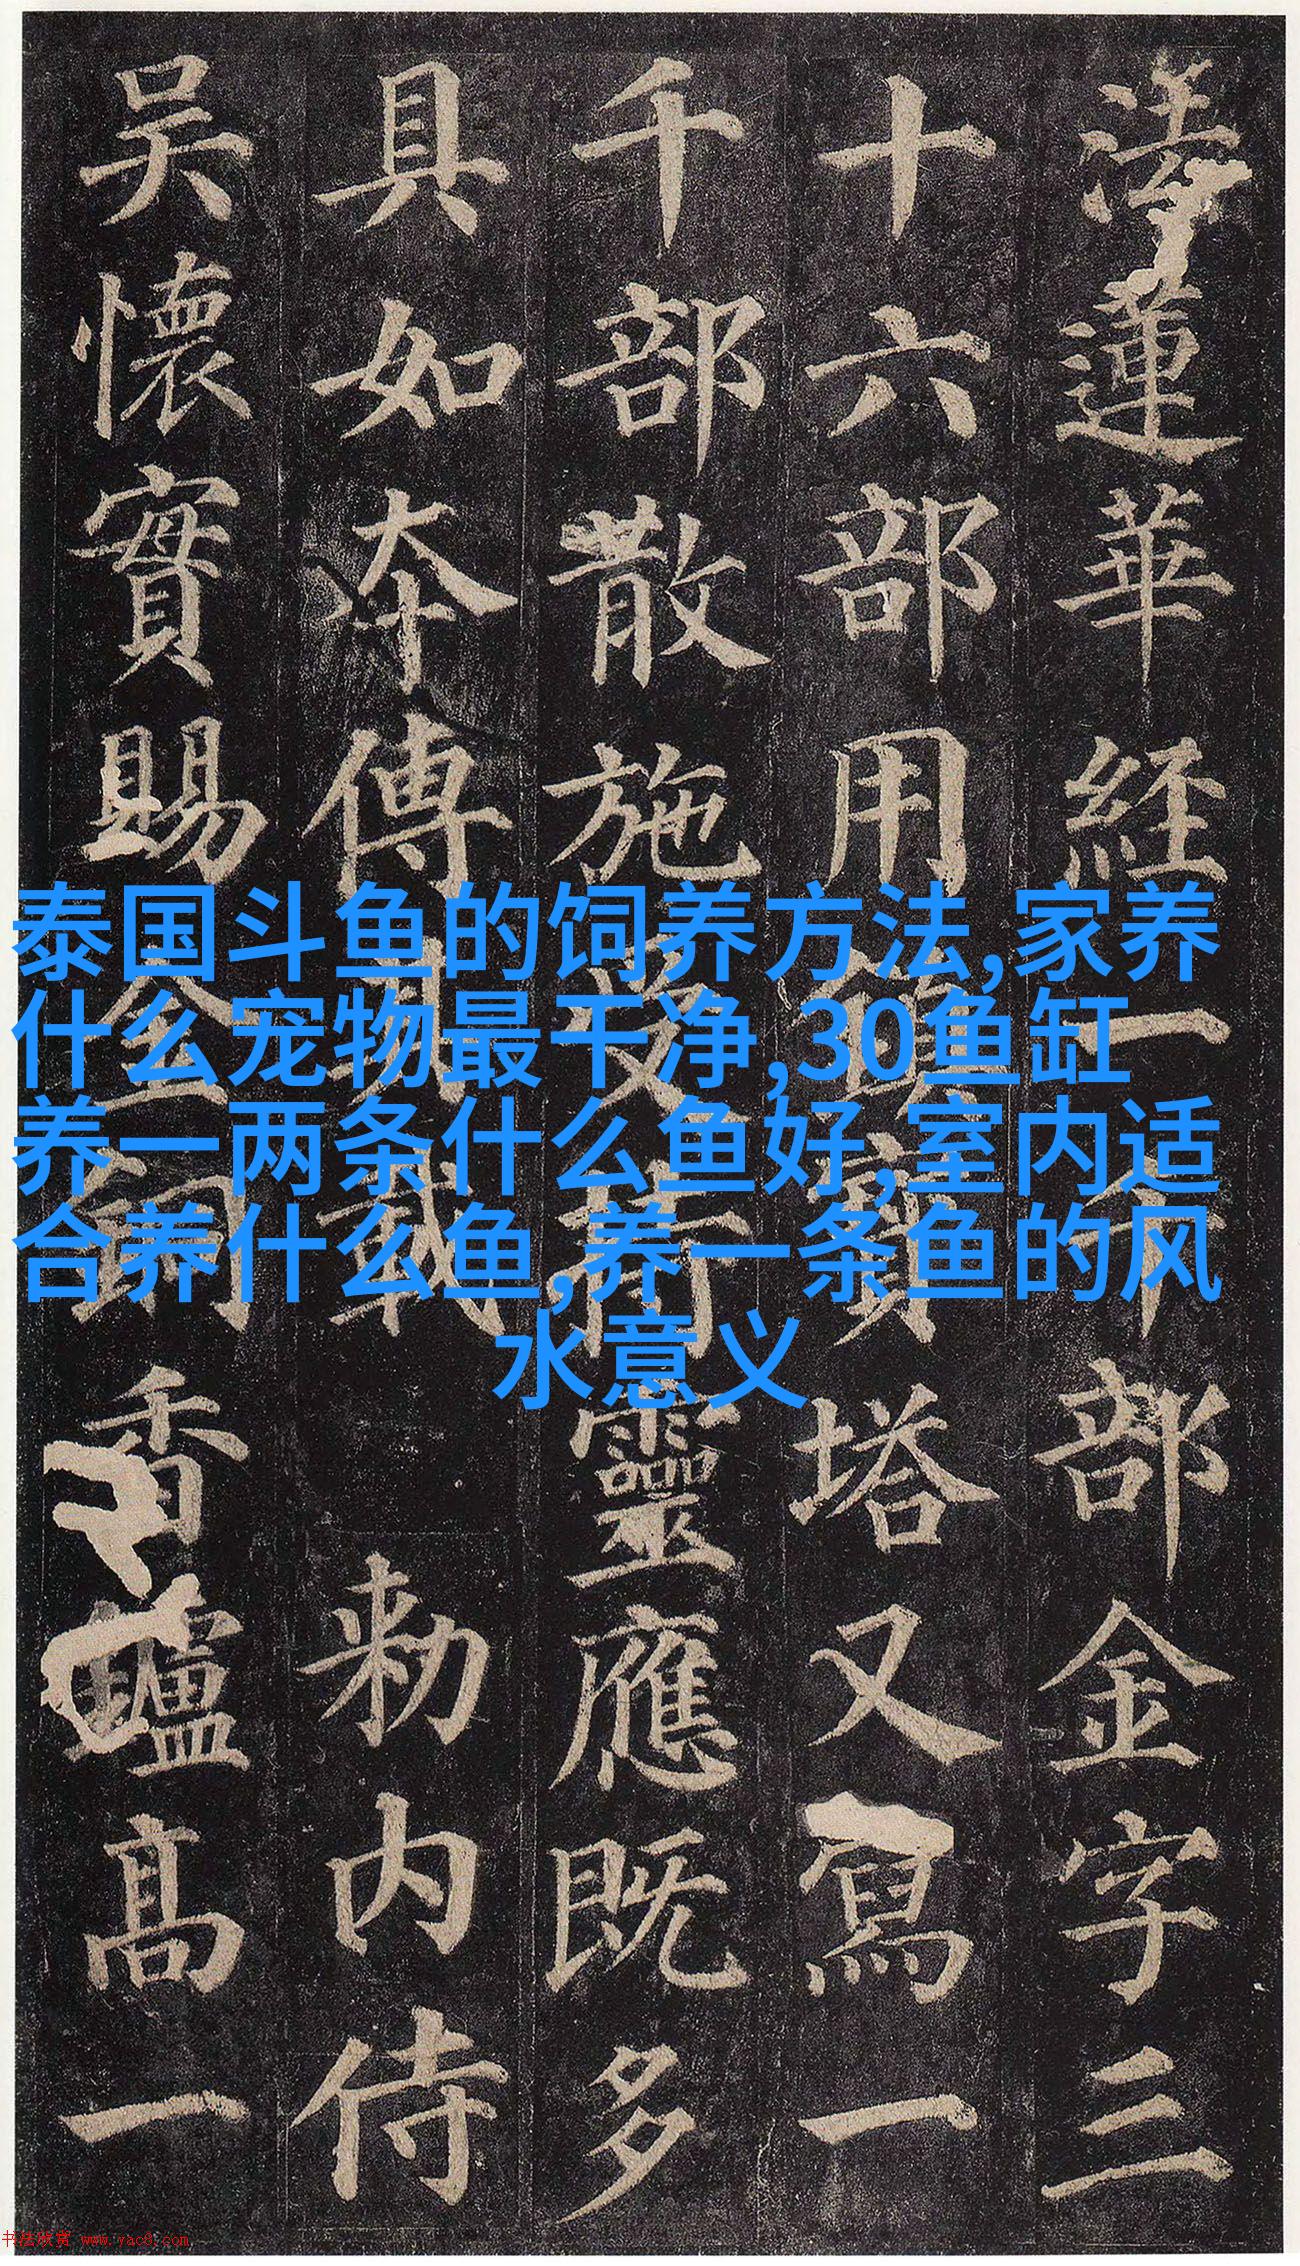 法蓮華經一千部金字三
十六部用鎮寶塔又寫一
千部散施受持靈應既多
具如本傳其載 勅内侍
吳懷實賜金銅香爐高一
泰国斗鱼的饲养方法,家养
什么宠物最干净,30鱼缸
养一两条什么鱼好,室内适
合养什么鱼,养一条鱼的风
水意义
书法欣赏 www.yac8.com